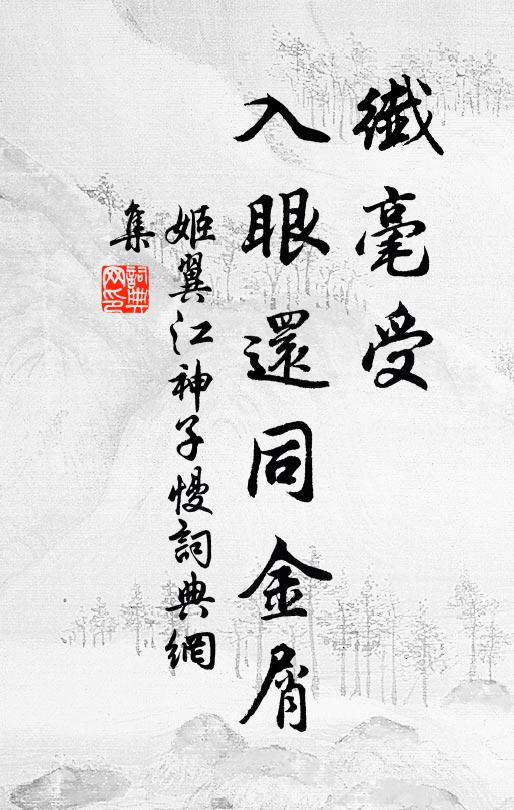 纖毫受
入眼還同金屑
姬翼江神子慢詞典網
集
詞典
网印